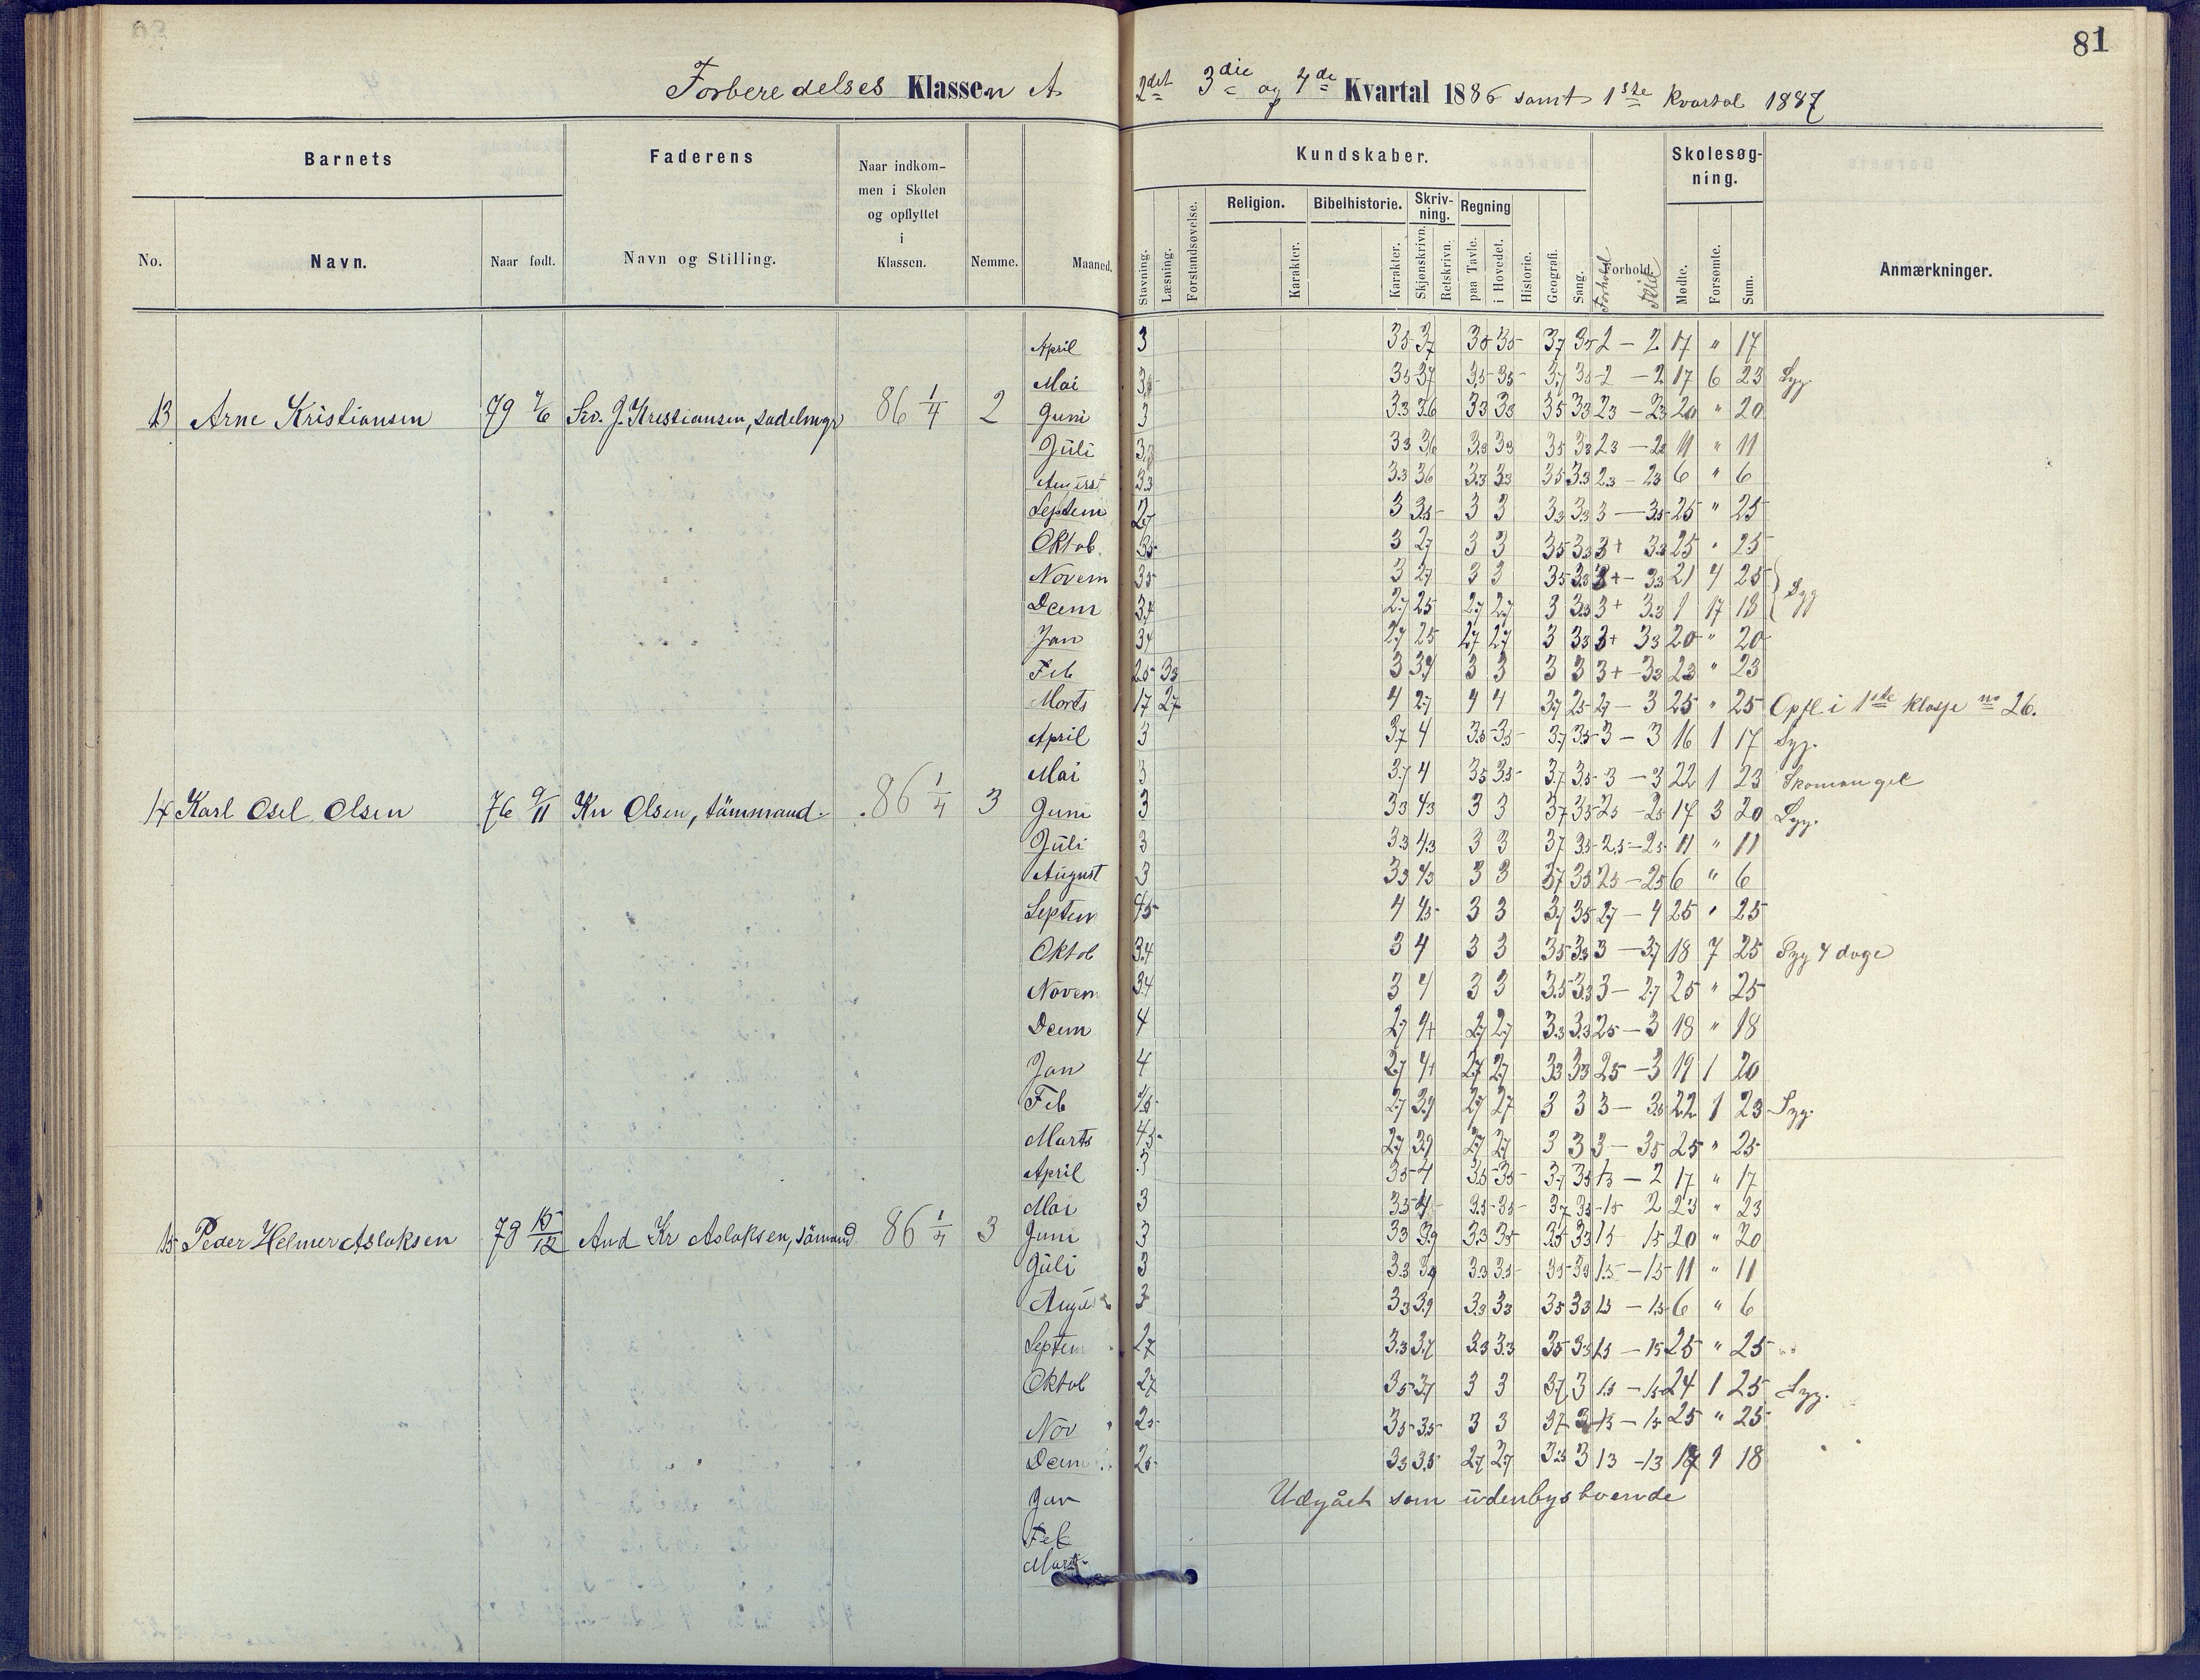 81
Forberedelses Klassen A
2det 3die og 4de Kvartal 1886 samt 1ste Kvartal 1887
Barnets
Faderens
Naar indkommen i Skolen og opflyttet i Klassen.
Kundskaber.
Skolesøgning.
No.
Navn.
Naar født.
Navn og Stilling.
Nemme.
Maaned.
Stavning.
Læsning.
Forstandsøvelse.
Religion.
Karakter.
Bibelhistorie.
Karakter.
Skrivning.
Skjønskrivn.
Retskrivn.
Regning
paa Tavle.
i Hovedet.
Historie.
Geografi.
Sang.
Forhold.
Forhold
Flid
Mødte.
Forsømte.
Sum.
Anmærkninger.
13 Arne Kristiansen 79 7/6 J. Kristiansen, sadelmgr 86 1/4 2
April 3 35 37 35 35 37 35 2 - 2 17 " 17
Mai 35 37 35 35 37 35 2 - 2 17 6 23 Syg
Juni 3 33 36 33 33 35 33 23 - 23 20 " 20
Juli 33 36 33 33 35 33 23 - 11 " 11
August 33 33 36 33 33 35 33 23 - 23 6 " 6
Septem 27 3 35 3 3 33 33 3 - 35 25 " 25
Oktob. 35 3 27 3 3 35 33 3+ 33 25 " 25
Novem 35 3 27 3 3 35 33 3+ - 33 21 4 25 Syg
Decm 34 27 25 27 27 3 33 3+ 33 1 17 18
Jan 34 27 25 27 27 3 33 3+ 33 20 " 20
Feb 25 33 3 39 3 3 3 3 3+ - 33 23 " 23
Marts 17 27 4 27 4 4 37 25 27 - 3 25 " 25 Opfl i 1ste Klasse no 26.
14 Karl Osel Olsen 76 9/11 Kn Olsen, tömmand. 86 1/4 3
April 3 37 4 35 35 37 35 3 - 3 16 1 17 Syg.
Mai 3 37 4 35 35 37 35 3 - 3 22 1 23 Skomangel
Juni 3 33 43 3 3 37 35 25 - 25 17 3 20 Syg.
Juli 3 33 43 3 3 37 35 25 - 25 11 " 11
August 3 33 43 3 3 37 35 25 - 25 6 " 6
Septem 45 4 45 3 3 37 35 27 - 4 25 " 25
Oktob 34 3 4 3 3 35 33 3 - 37 18 7 25 Syg 4 dage
Novem 34 3 4 3 3 35 33 3 - 27 25 " 25
Decm 4 27 4 27 27 33 33 25 - 3 18 " 18
Jan 4 27 4 27 27 33 33 25 - 3 19 1 20
Feb 45 27 39 27 27 3 3 3 - 35 22 1 23 Syg.
Marts 45 27 39 27 27 3 3 3 - 35 25 " 25
15 Peder Helmer Aslaksen 78 15/12 And Kr Aslaksen, sömand 86 1/4 3
April 3 35 4 35 35 37 35 15 - 2 17 " 17
Mai 3 35 4 35 35 37 35 15 2 23 " 23
Juni 3 33 39 33 35 35 33 15 15 20 " 20
Juli 3 33 39 33 35 35 33 15 - 15 11 " 11
August 3 33 39 33 33 35 33 15 - 15 6 " 6
Septem 27 33 37 33 33 35 33 15 - 15 25 " 25
Oktob 27 35 37 3 3 37 3 15 - 15 24 1 25 Syg.
Nov 25 35 35 3 3 37 3 15 - 15 25 " 25
Decm 25 33 35 27 27 35 3 13 - 13 17 1 18
Jan Udgået som udenbysboende
Feb
Marts